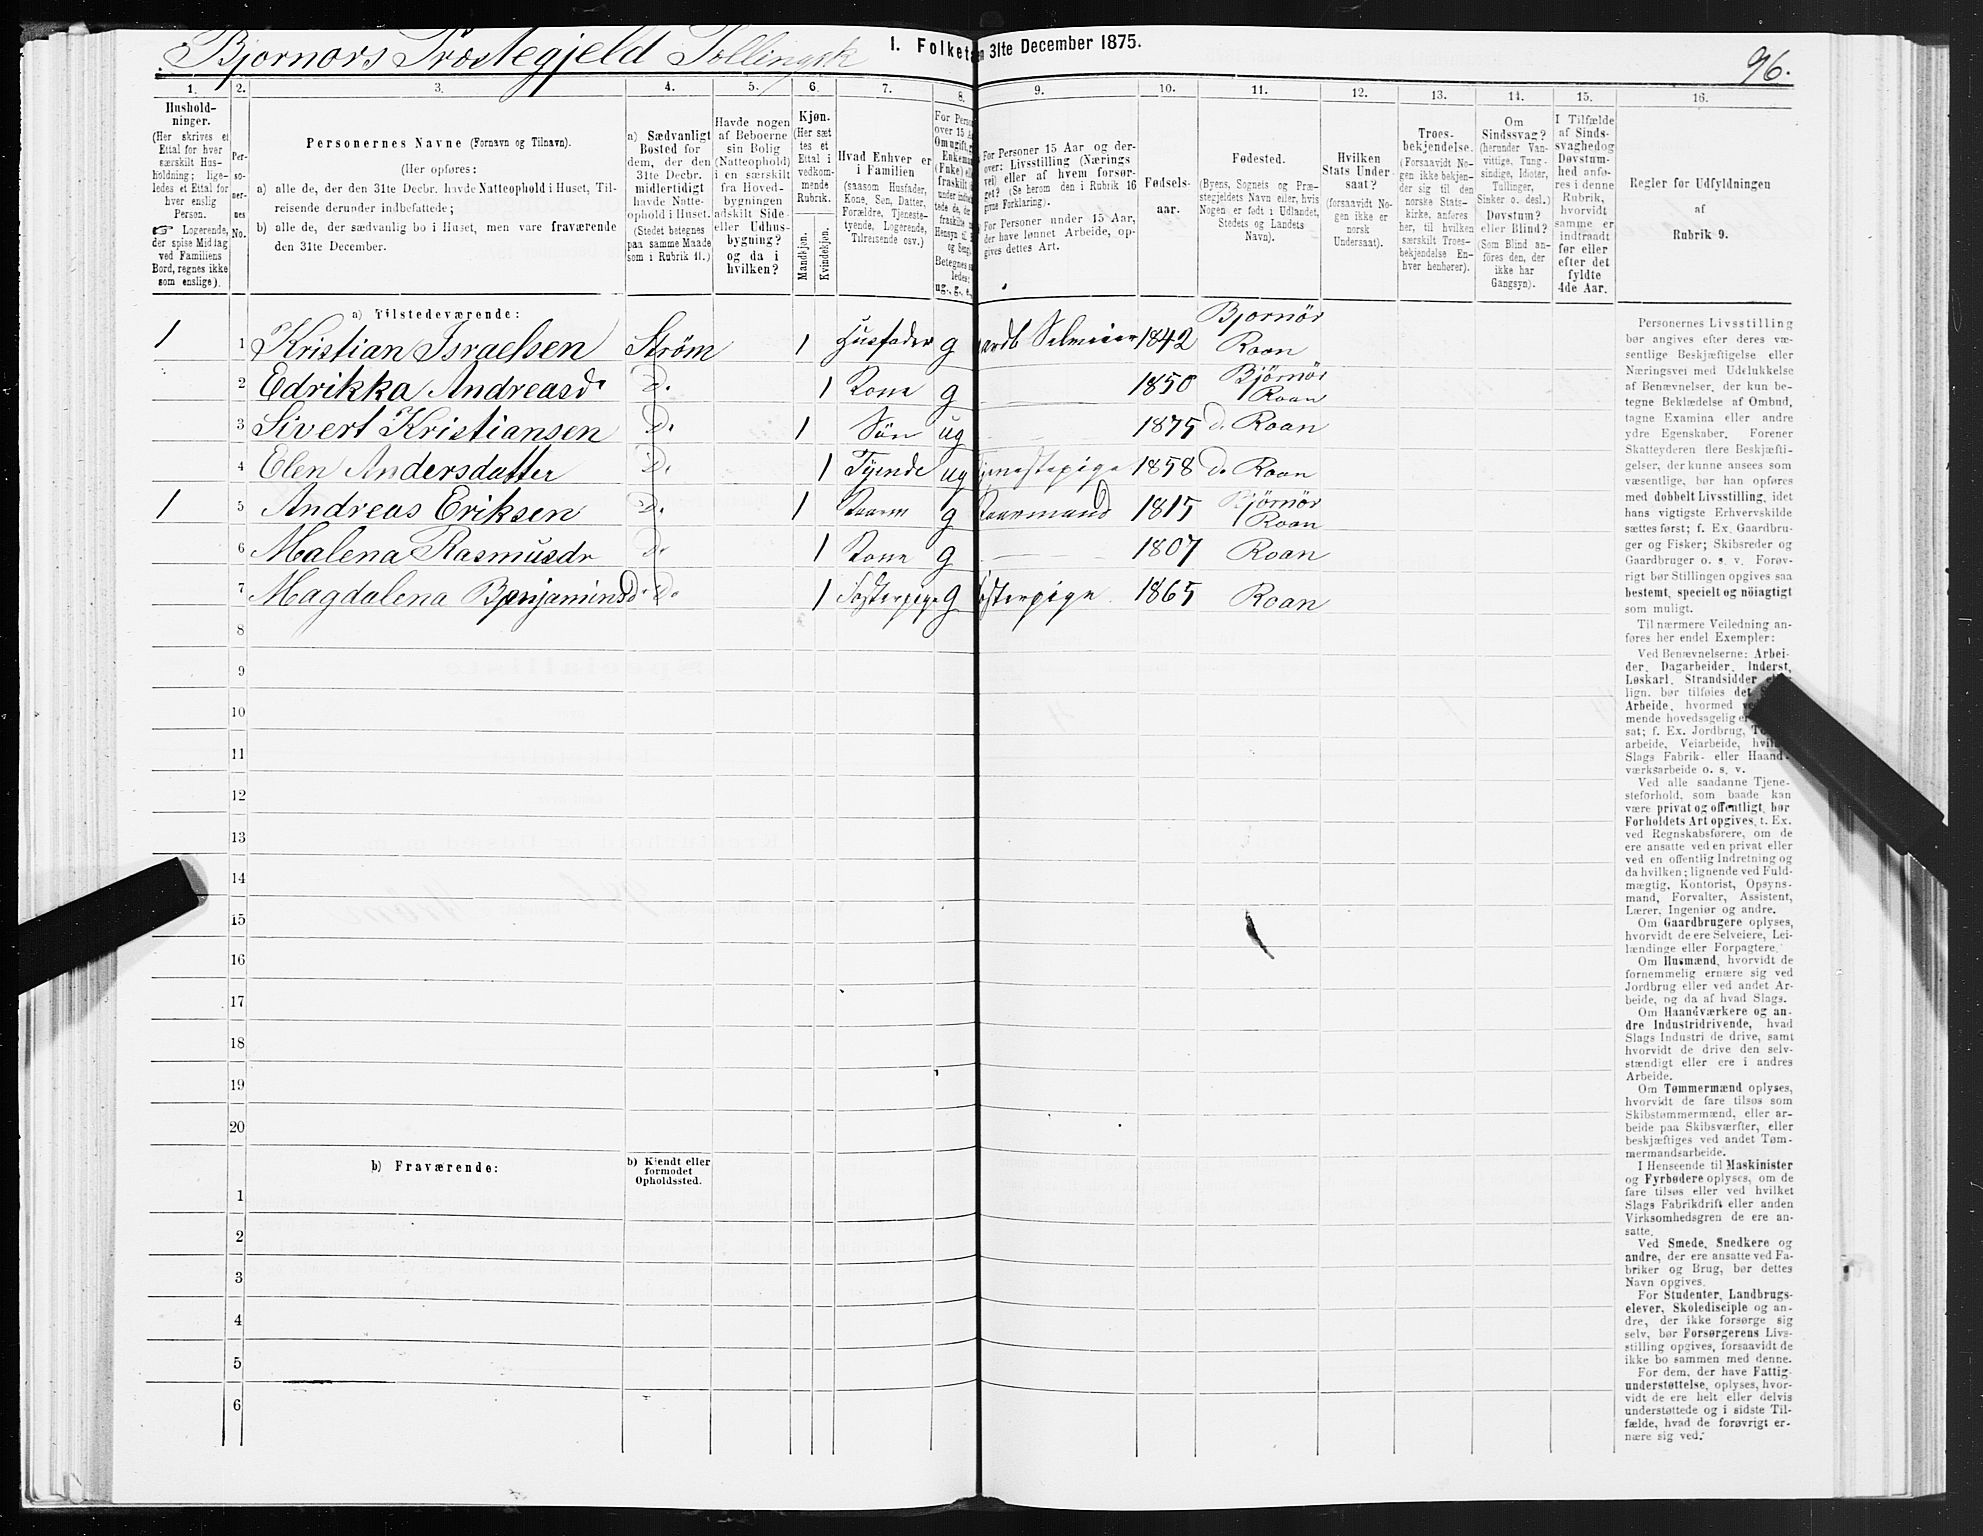 Bjornørs Præstegjeld
I. Folket
n 31te December 1875.
96.
1. 2. 3. 4. 5. 6. 7. 8. 9. 10. 11. 12. 13. 14. 15. 16.
Hushold-
ninger.
(Her skrives et
Ettal for hver
særskilt Hus-
holdning; lige-
ledes et Ettal for
hver enslig
Person.
☞ Logerende,
der spise Middag
ved Familiens
Bord, regnes ikke
som enslige).
Per-
so-
ner-
nes
No.
Personernes Navne (Fornavn og Tilnavn).
(Her opføres:
a) alle de, der den 31te Decbr. havde Natteophold i Huset, Til-
reisende derunder indbefattede;
b) alle de, der sædvanlig bo i Huset, men vare fraværende
den 31te December.
a) Sædvanligt
Bosted for
dem, der den
31te Decbr.
midlertidigt
havde Natte-
ophold i Huset.
(Stedet betegnes
paa samme Maade
som i Rubrik 11.)
Havde nogen
af Beboerne
sin Bolig
(Natteophold)
i en særskilt
fra Hoved-
bygningen
adskilt Side-
eller Udhus-
bygning?
og da i
hvilken?
Kjøn.
(Her sæt
tes et
Ettal i
vedkom-
mende
Rubrik.
Mandkjøn.
Kvindekjøn.
Hvad Enhver er
i Familien
(saasom Husfader,
Kone, Søn, Datter,
Forældre, Tjeneste-
tyende, Logerende,
Tilreisende osv.)
For Perso
over 15 A
Om ugift, g
Enkema
(Enke) el
fraskilt
ug., g., e.,
For Personer 15 Aar og der-
over: Livsstilling (Nærings
vei) eller af hvem forsør-
get? (Se herom den i Rubrik 16
givne Forklaring).
For Personer under 15 Aar,
der have lønnet Arbeide, op-
gives dettes Art.
Fødsels-
aar.
Fødested.
(Byens, Sognets og Præ-
stegjeldets Navn eller, hvis
Nogen er født i Udlandet,
Stedets og Landets
Navn).
Hvilken
Stats Under-
saat?
(forsaavidt No-
gen ikke er
norsk
Undersaat).
Troes-
bekjendelse.
(Forsaavidt No-
gen ikke bekjen-
der sig til den
norske Stats-
kirke, anføres
her, til hvilken
særskilt Troes-
bekjendelse En-
hver henhører).
Om
Sindssvag?
(herunder Van-
vittige, Tung-
sindige, Idioter,
Tullinger,
Sinker o. desl.)
Døvstum?
eller Blind?
(Som Blind an-
føres den, der
ikke har
Gangsyn).
I Tilfælde
af Sinds-
svaghed og
Døvstum-
hed anfø-
res i denne
Rubrik,
hvorvidt
samme er
indtraadt
før eller
efter det
fyldte
4de Aar.
Regler for Udfyldningen
af
Rubrik 9.
a) Tilstedeværende:
1 1 Kristian Israelsen Strøm 1 Husfader g Selveier 1842 Bjornør Roan
2 Edrikka Andreasd. D. 1 Kone g — 1850 Bjørnør Roan
3 Sivert Kristiansen D. 1 Søn ug 1875 d. Roan
4 Elen Andersdatter D. 1 Tyende ug jenestepige 1858 do Roan
1 5 Andreas Eriksen D. 1 g aarmand 1815 Bjørnør Roan
6 Malena Rasmusdr D. 1 Kone g — 1807 Roan
7 Magdalena Benjaminsd. D. 1 Fosterpige g osterpige 1865 Roan
8
9
10
11
12
13
14
15
16
17
18
19
20
b) Fraværende:
b) Kjendt eller
formodet
Opholdssted.
1
2
3
4
5
6
Personernes Livsstilling
bør angives efter deres væ-
sentlige Beskjæftigelse eller
Næringsvei med Udelukkelse
af Benævnelser, der kun be-
tegne Beklædelse af Ombud,
tagne Examina eller andre
ydre Egenskaber. Forener
Skatteyderen flere Beskjæfti-
gelser, der kunne ansees som
væsentlige, bør han opføres
med dobbelt Livsstilling, idet
hans vigtigste Erhvervskilde
sættes først; f. Ex. Gaardbru-
ger og Fisker; Skibsreder og
Gaardbruger o. s. v. Forøv-
rigt bør Stillingen opgives saa
bestemt, specielt og nöiagtigt
som muligt.
Til nærmere Veiledning an-
føres her endel Exempler:
Ved Benævnelserne: Arbei-
der, Dagarbeider, Inderst,
Løskarl, Strandsidder
lign. bør tilføies det
Arbeide, hvormed
mende hovedsagelig er
sat; f. Ex. Jordbrug,
arbeide, Veiarbeide,
Slags Fabrik- eller Haand-
værksarbeide o. s. v.
Ved alle saadanne Tjene-
steforhold, som baade kan
være privat og offentligt, bør
Forholdets Art opgives, t. Ex.
ved Regnskabsførere, om de
ere ansatte ved en privat eller
ved en offentlig Indretning og
da hvilken; lignende ved Fuld-
mægtig, Kontorist, Opsyns-
mand, Forvalter, Assistent,
Lærer, Ingeniør og andre.
Om Gaardbrugere oplyses,
hvorvidt de ere Selveiere, Lei-
lændinge eller Forpagtere.
Om Husmænd, hvorvidt de
fornemmelig ernære sig ved
Jordbrug eller ved andet Ar-
beide, og da af hvad Slags.
Om Haandværkere og an-
dre Industridrivende, hvad
Slags Industri de drive, samt
hvorvidt de drive den selv-
stændigt eller ere i andres
Arbeide.
Om Tømmermænd oplyses,
hvorvidt de fare tilsøs som
Skibstømmermænd, eller ar-
beide paa Skibsværfter, eller
beskjæftiges ved andet Tøm-
mermandsarbeide.
I Henseende til Maskinister
og Fyrbødere oplyses, om de
fare tilsøs eller ved hvilket
Slags Fabrikdrift eller anden
Virksomhedsgren de ere an-
satte.
Ved Smede, Snedkere og
andre, der ere ansatte ved Fa-
briker og Brug, bør dettes
Navn opgives.
For Studenter, Landbrugs-
elever, Skoledisciple og an-
dre, der ikke forsørge sig
selv, bør Forsørgerens Livs-
stilling opgives, forsaavidt de
ikke bo sammen med denne.
For dem, der have Fattig-
understøttelse, oplyses, hvor-
vidt de ere helt eller delvis
understøttede og i sidste Til-
fælde, hvad de forøvrigt er-
nære sig ved.